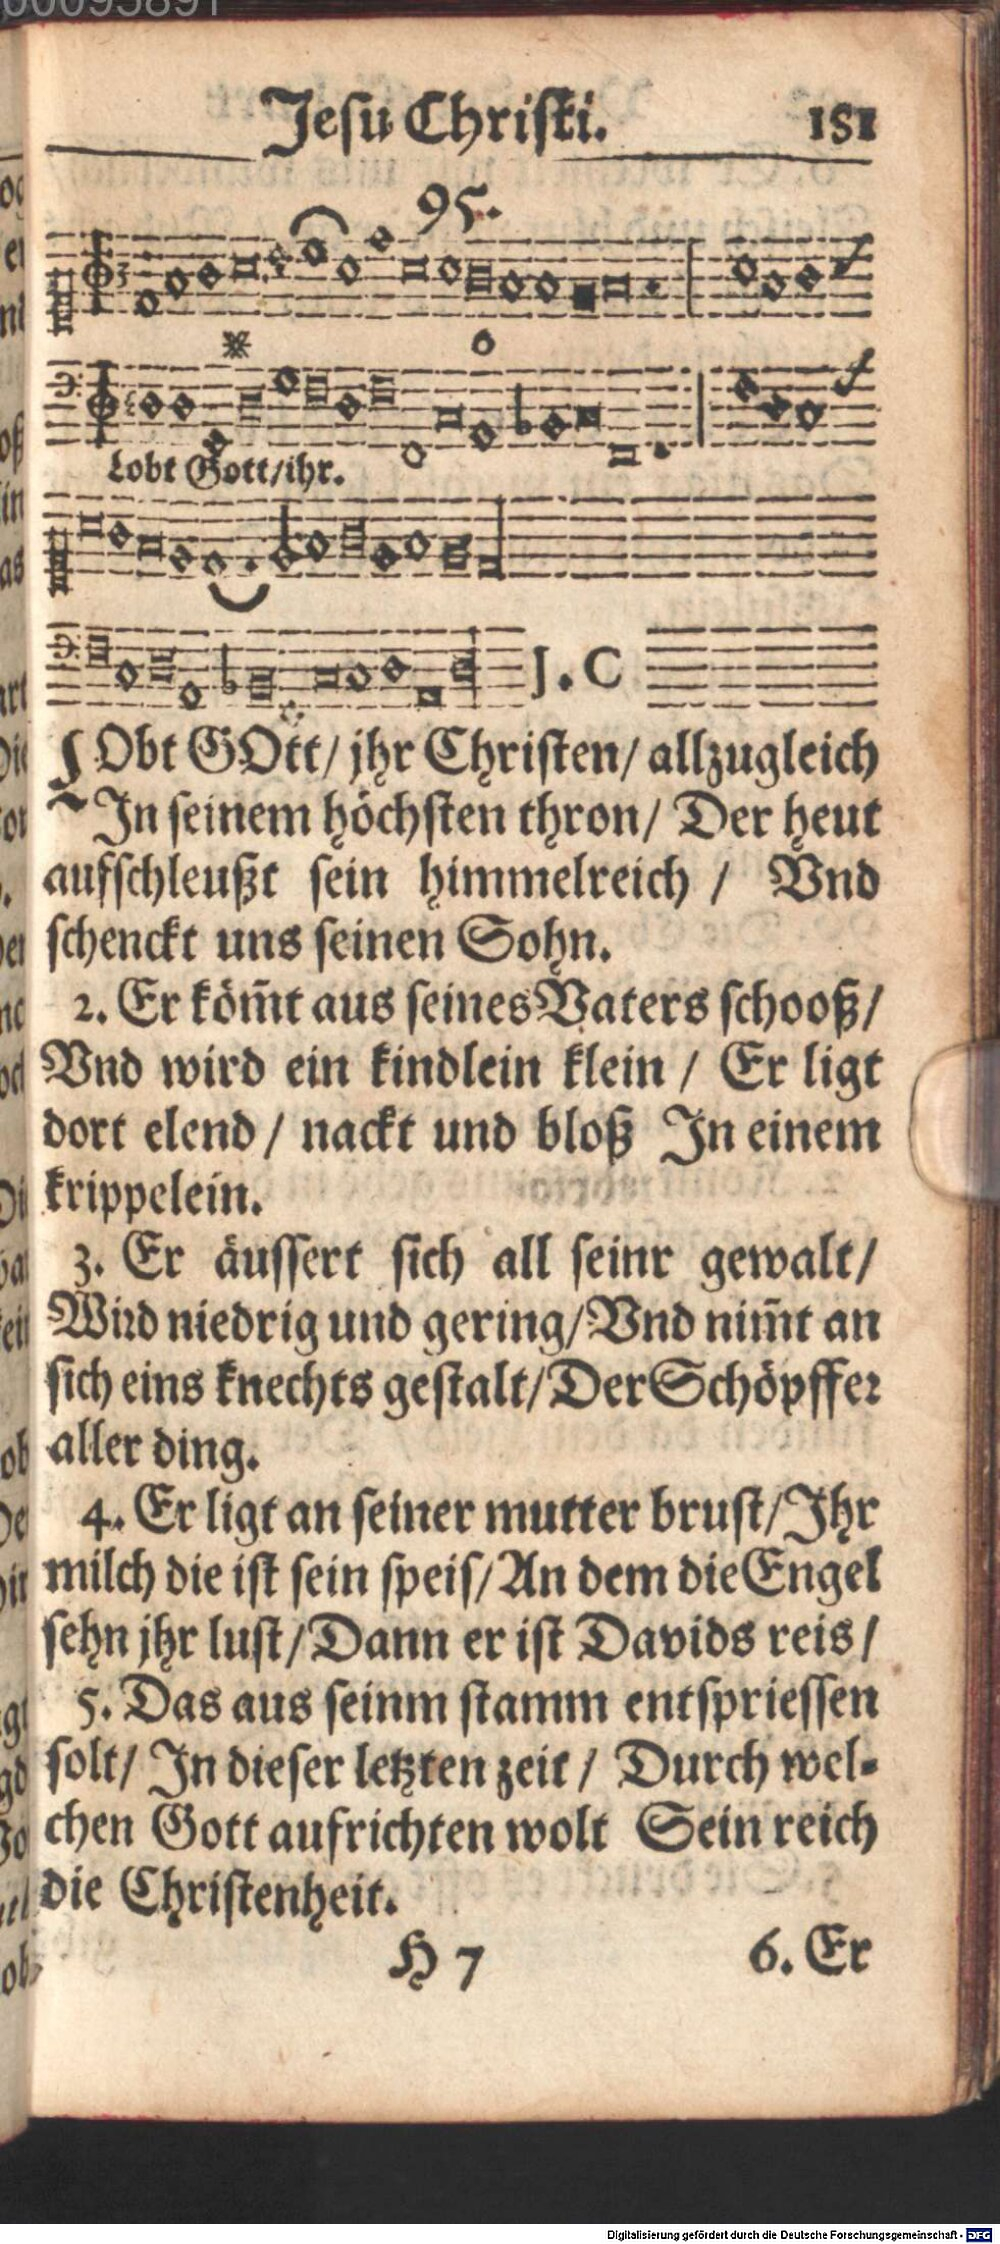 Jesu Christi. 181
95.
Lobt Gott/ihr.
J. C
LObt GOtt/ jhr Christen/ allzugleich
In seinem höchsten thron/ Der heut
aufschleußt sein himmelreich / Vnd
schenckt uns seinen Sohn.
2. Er köm̃t aus seines Vaters schooß/
Vnd wird ein kindlein klein / Er ligt
dort elend / nackt und bloß In einem
krippelein.
3. Er äussert sich all seinr gewalt/
Wird niedrig und gering/ Vnd nim̃t an
sich eins knechts gestalt/ Der Schöpffer
aller ding.
4. Er ligt an seiner mutter brust/ Ihr
milch die ist sein speis/ An dem die Engel
sehn jhr lust/ Dann er ist Davids reis /
5. Das aus seinm stamm entspriessen
solt/ In dieser letzten zeit / Durch wel-
chen Gott aufrichten wolt Sein reich
die Christenheit.
H 7 6. Er
Digitalisierung gefördert durch die Deutsche Forschungsgemeinschaft - DFG